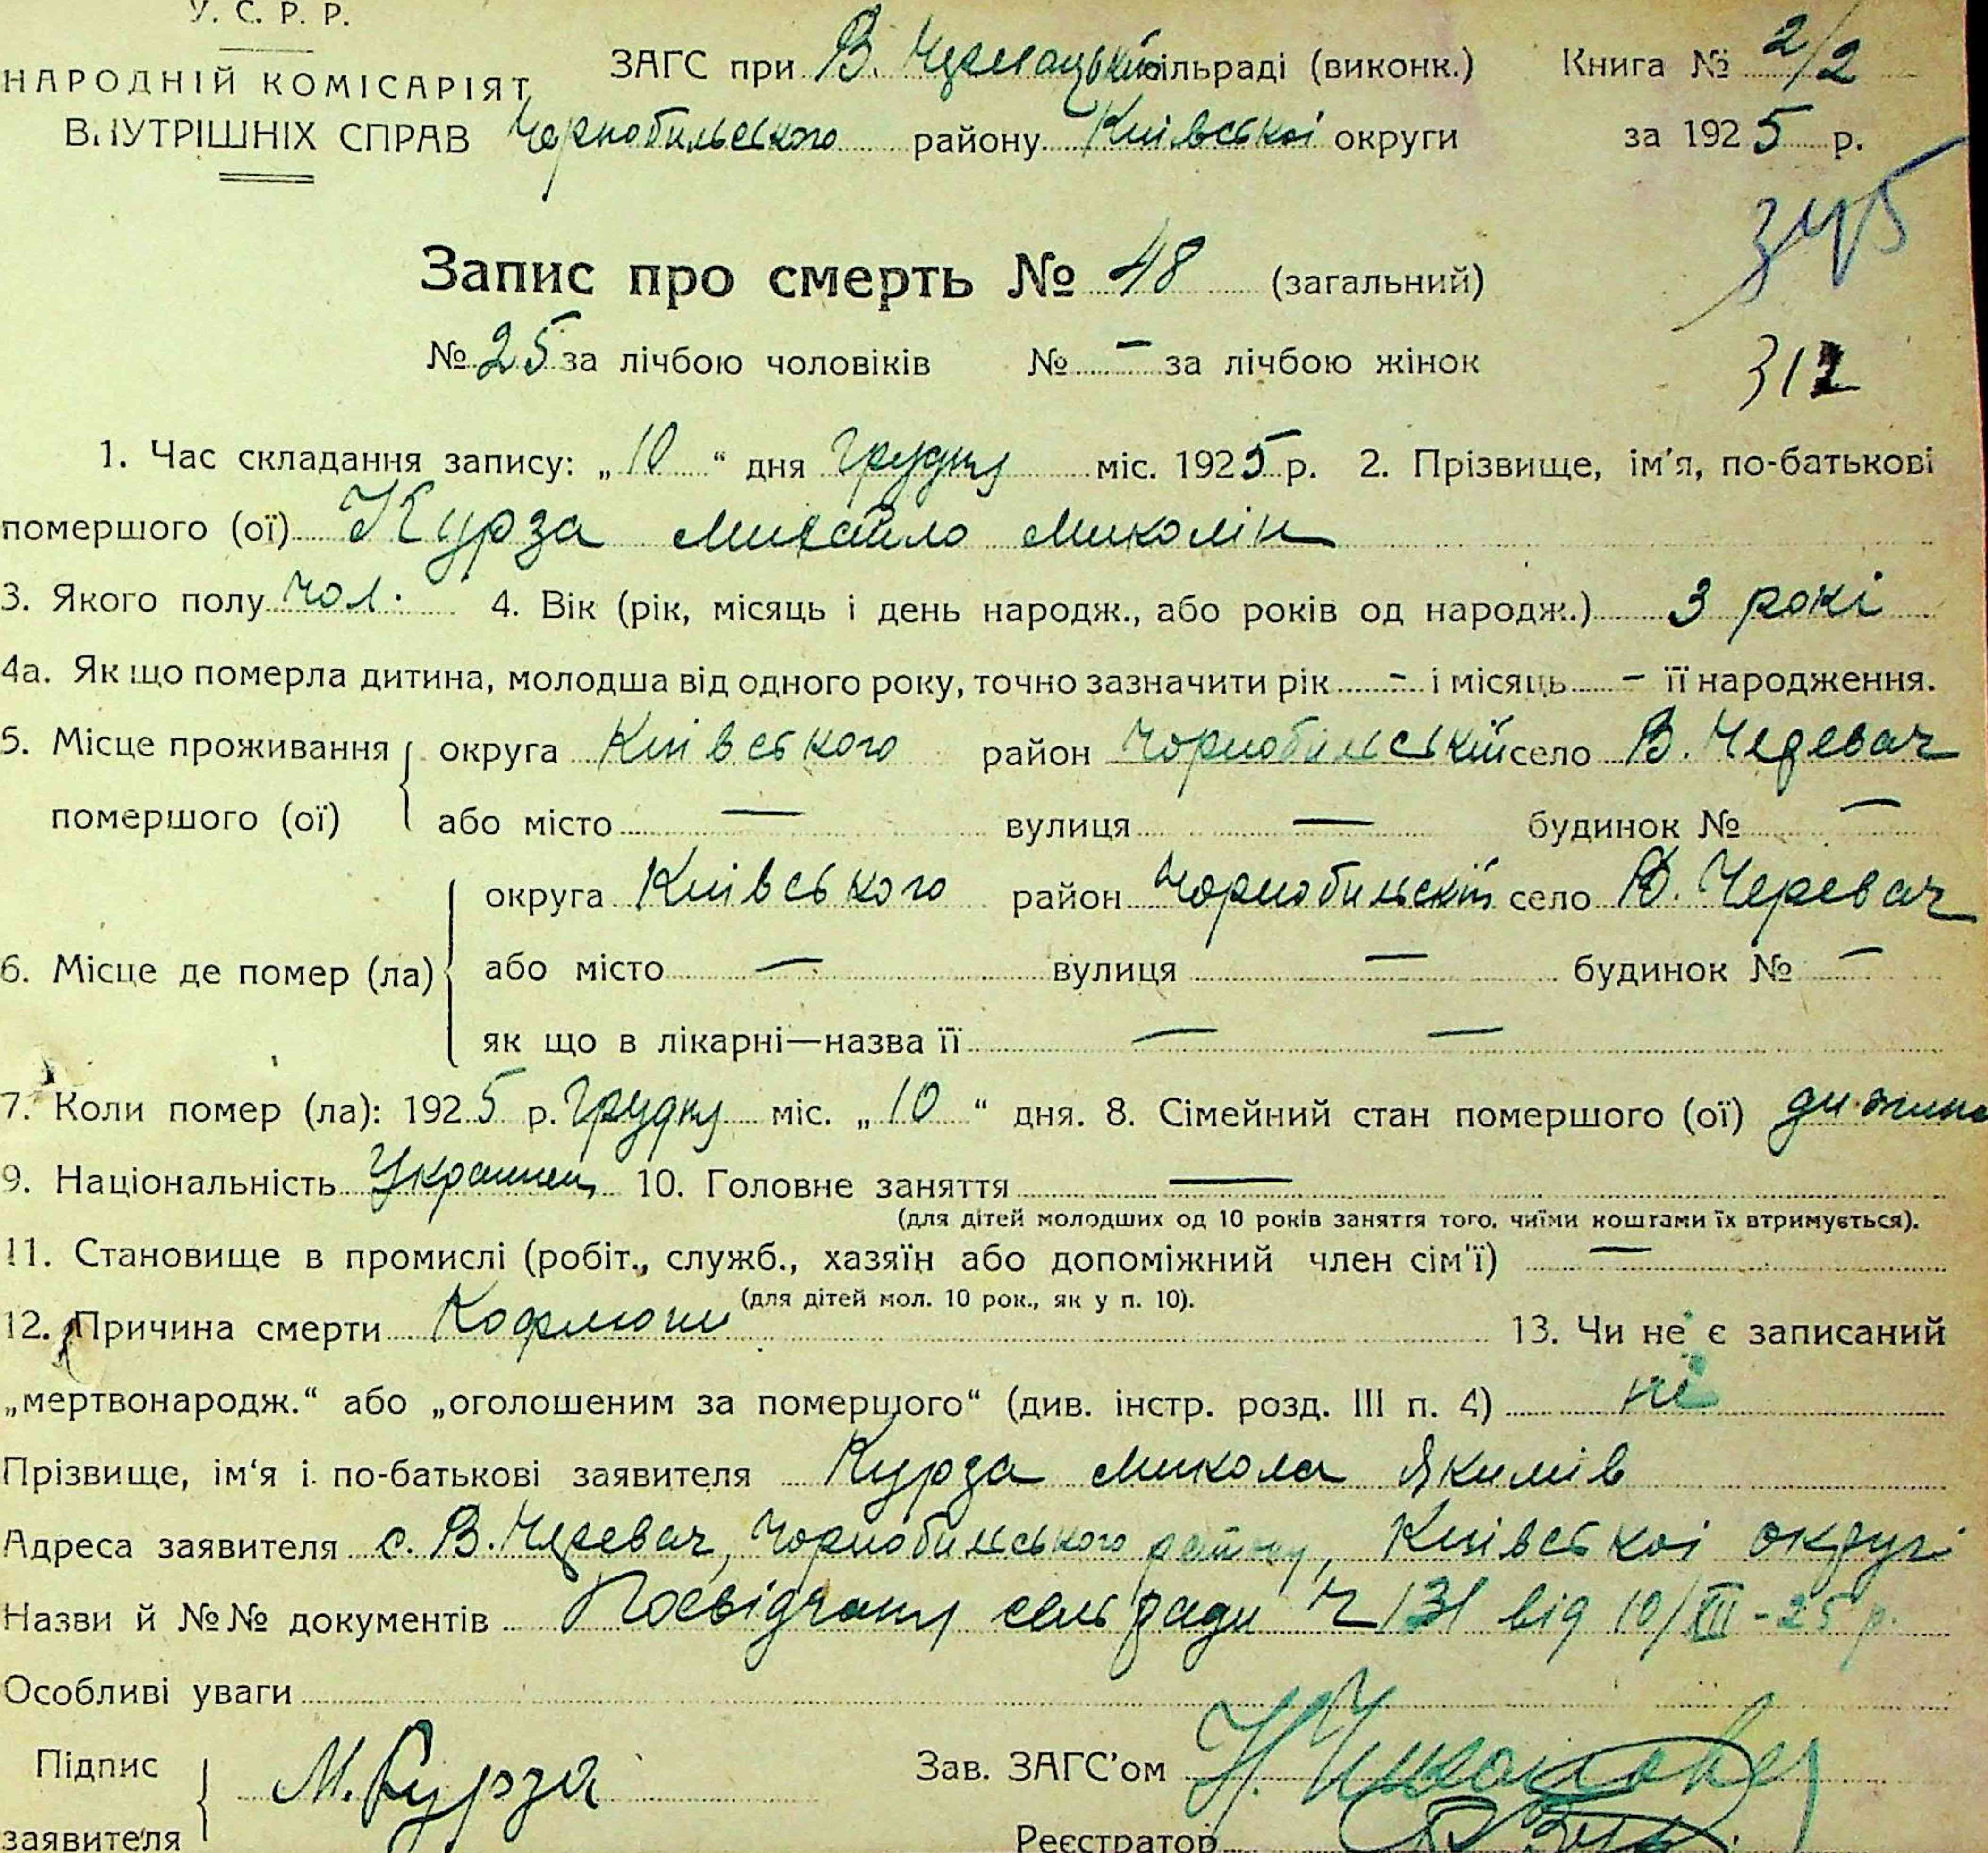 У. С. Р. Р.
НАРОДНІЙ КОМІСАРІЯТ
ВНУТРІШНІХ СПРАВ
ЗАГС при В. Черевацькій сільраді (виконк.) Книга № 2/2
Чорнобильського району Київської округи за 1925 р.
345
Запис про смерть № 48 (загальний)
№ 25 за лічбою чоловіків № — за лічбою жінок
312
1. Час складання запису: „10“ дня Грудня міс. 1925 р. 2. Прізвище, ім'я, по-батькові
помершого (ої) Курза Михайло Миколін
3. Якого полу чол. 4. Вік (рік, місяць і день народж., або років од народж.) 3 рокі
4а. Як що померла дитина, молодша від одного року, точно зазначити рік — і місяць — її народження.
5. Місце проживання помершого (ої) округа Київського район Чорнобильський село В. Черевач
або місто — вулиця — будинок № —
6. Місце де помер (ла) округа Київського район Чорнобильский село В. Черевач
або місто — вулиця — будинок № —
як що в лікарні—назва її — —
7. Коли помер (ла): 1925 р. Грудня міс. „10“ дня. 8. Сімейний стан помершого (ої) дитина
9. Національність Українец 10. Головне заняття —
(для дітей молодших од 10 років заняття того, чиїми коштами їх втримується).
11. Становище в промислі (робіт., служб., хазяїн або допоміжний член сім'ї) —
(для дітей мол. 10 рок., як у п. 10).
12. Причина смерти 13. Чи не є записаний
„мертвонародж.“ або „оголошеним за помершого“ (див. інстр. розд. III п. 4) ні
Прізвище, ім'я і по-батькові заявителя Курза Микола Якимів
Адреса заявителя с. В. Черевач, Чорнобильського району, Київської округі
Назви й №№ документів Посвідчання сельради Ч 131 від 10/XII-25 р.
Особливі уваги
Підпис заявителя М. Курза
Зав. ЗАГС'ом
Реєстратор